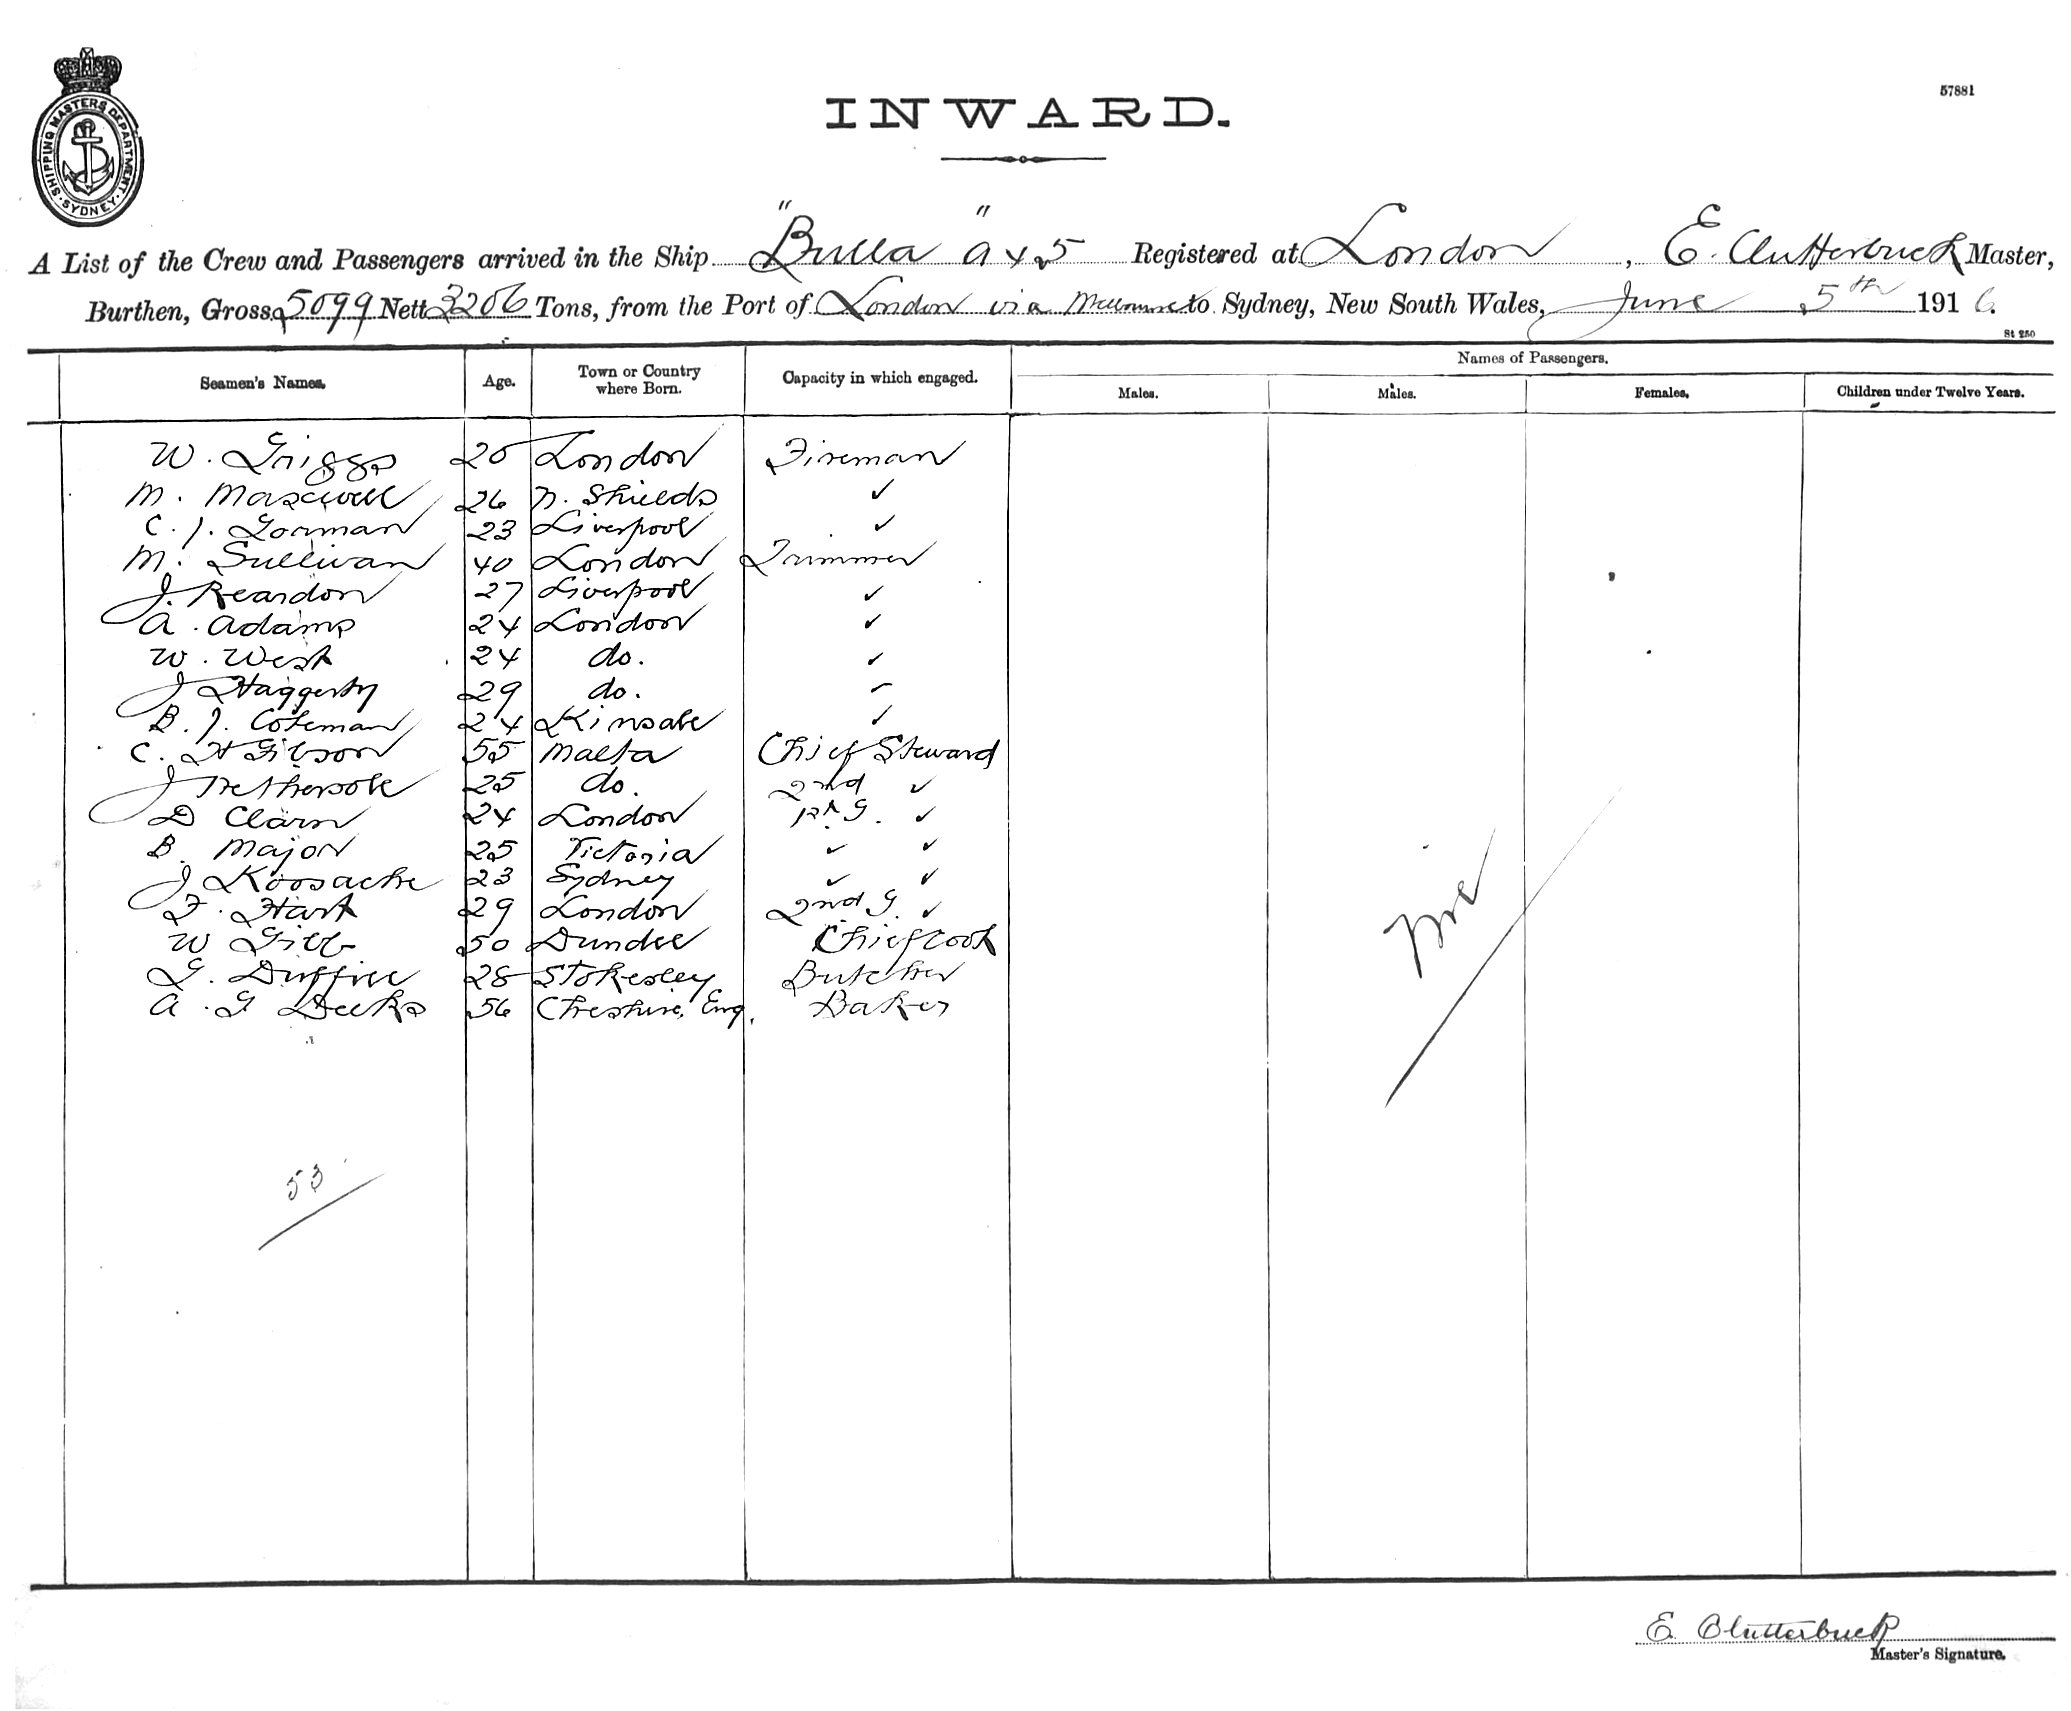 SHIPPING MASTERS DEPARTMENT
SYDNEY
57881
INWARD.
A List of the Crew and Passengers arrived in the Ship "Bulla" A45 Registered at London, E. Clutterbuck Master,
Burthen, Gross 5099 Nett 3206 Tons, from the Port of London via Melbourne to Sydney, New South Wales, June 5th 1916.
St 250
Seamen's Names. Age. Town or Country where Born. Capacity in which engaged. Names of Passengers.
Males. Males. Females. Children under Twelve Years.
W. Griggs 20 London Fireman
M. Maxwell 26 N. Shields ✓
C. J. Gorman 23 Liverpool ✓
M. Sullivan 40 London Trimmer
J. Reardon 27 Liverpool ✓
A. Adams 24 London ✓
W. West 24 do. ✓
J Haggerty 29 do. ✓
B. J. Coleman 24 Kinsale ✓
C. H Gibson 55 Malta Chief Steward
J Nethersole 25 do. 2nd ✓
D 24 London ✓
B. Major 25 Victoria ✓ ✓
J 23 Sydney ✓ ✓
F. Hart 29 London 2nd G. ✓
W Gibb 50 Dundee Chief Cook
G. Duffill 28 Stokesley Butcher
A. G Deeks 56 Cheshire, Eng. Baker
Nil
53
E. Clutterbuck
Master's Signature.